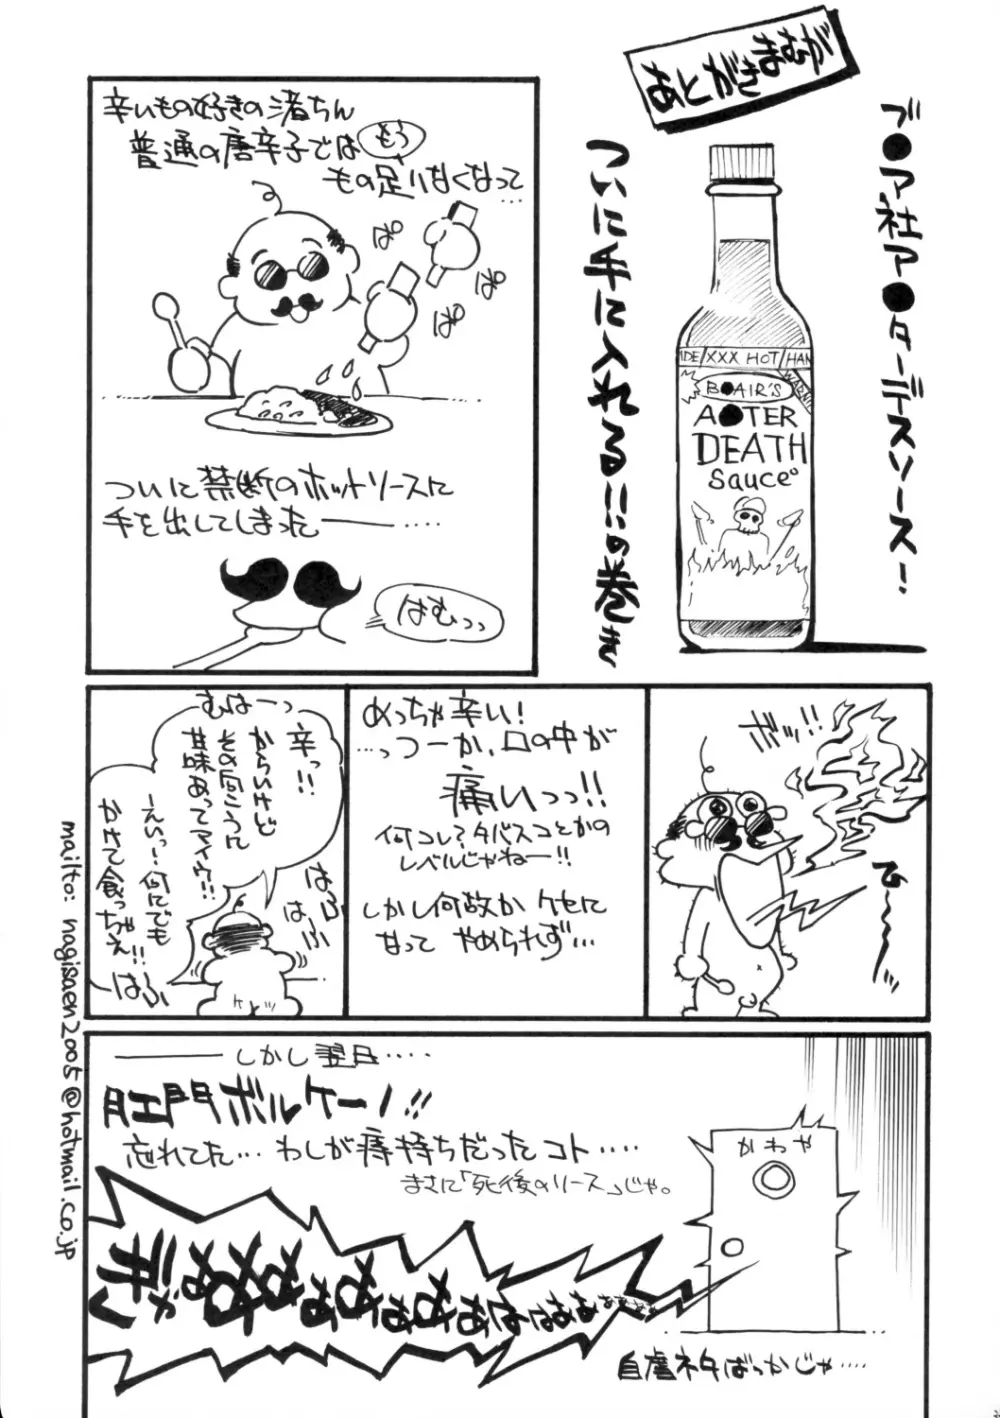 あとがきまむが
ブ●ア社ア●ターデスソース!
ついに手に入れる!!の巻き
IDE/XXX HOT/HAN
B●AIR'S
A●TER
DEATH
Sauce
辛いもの好きの渚ちん
普通の唐辛子ではもう
もの足りなくなって…
ぱ
ぱ
ぱ
ぱ
ついに禁断のホットソースに
手を出してしまった――‥‥
はむっっ
ボッ!!
ひ〜〜
めっちゃ辛い!
…っつーか、口の中が
痛いっっ!!
何コレ?タバスコとかの
レベルじゃねー!!
しかし何故かケセに
なって やめられず…
むはーっ
辛っ!!
からいけど
その向こうに
甘味あってアイウ!!
はふ
はふ
―えいっ!何にでも
かけて食っちゃえ!!
はふ
――しかし翌日‥‥
肛門ボルケーノ!!
忘れてた…わしが痔持ちだったコト‥‥
まさに「死後のソース」じゃ。
かわや
ぎゃああああああああはははああああああ
自虐ネタばっかじゃ‥‥
mailto: nagisaen2005@hotmail.co.jp